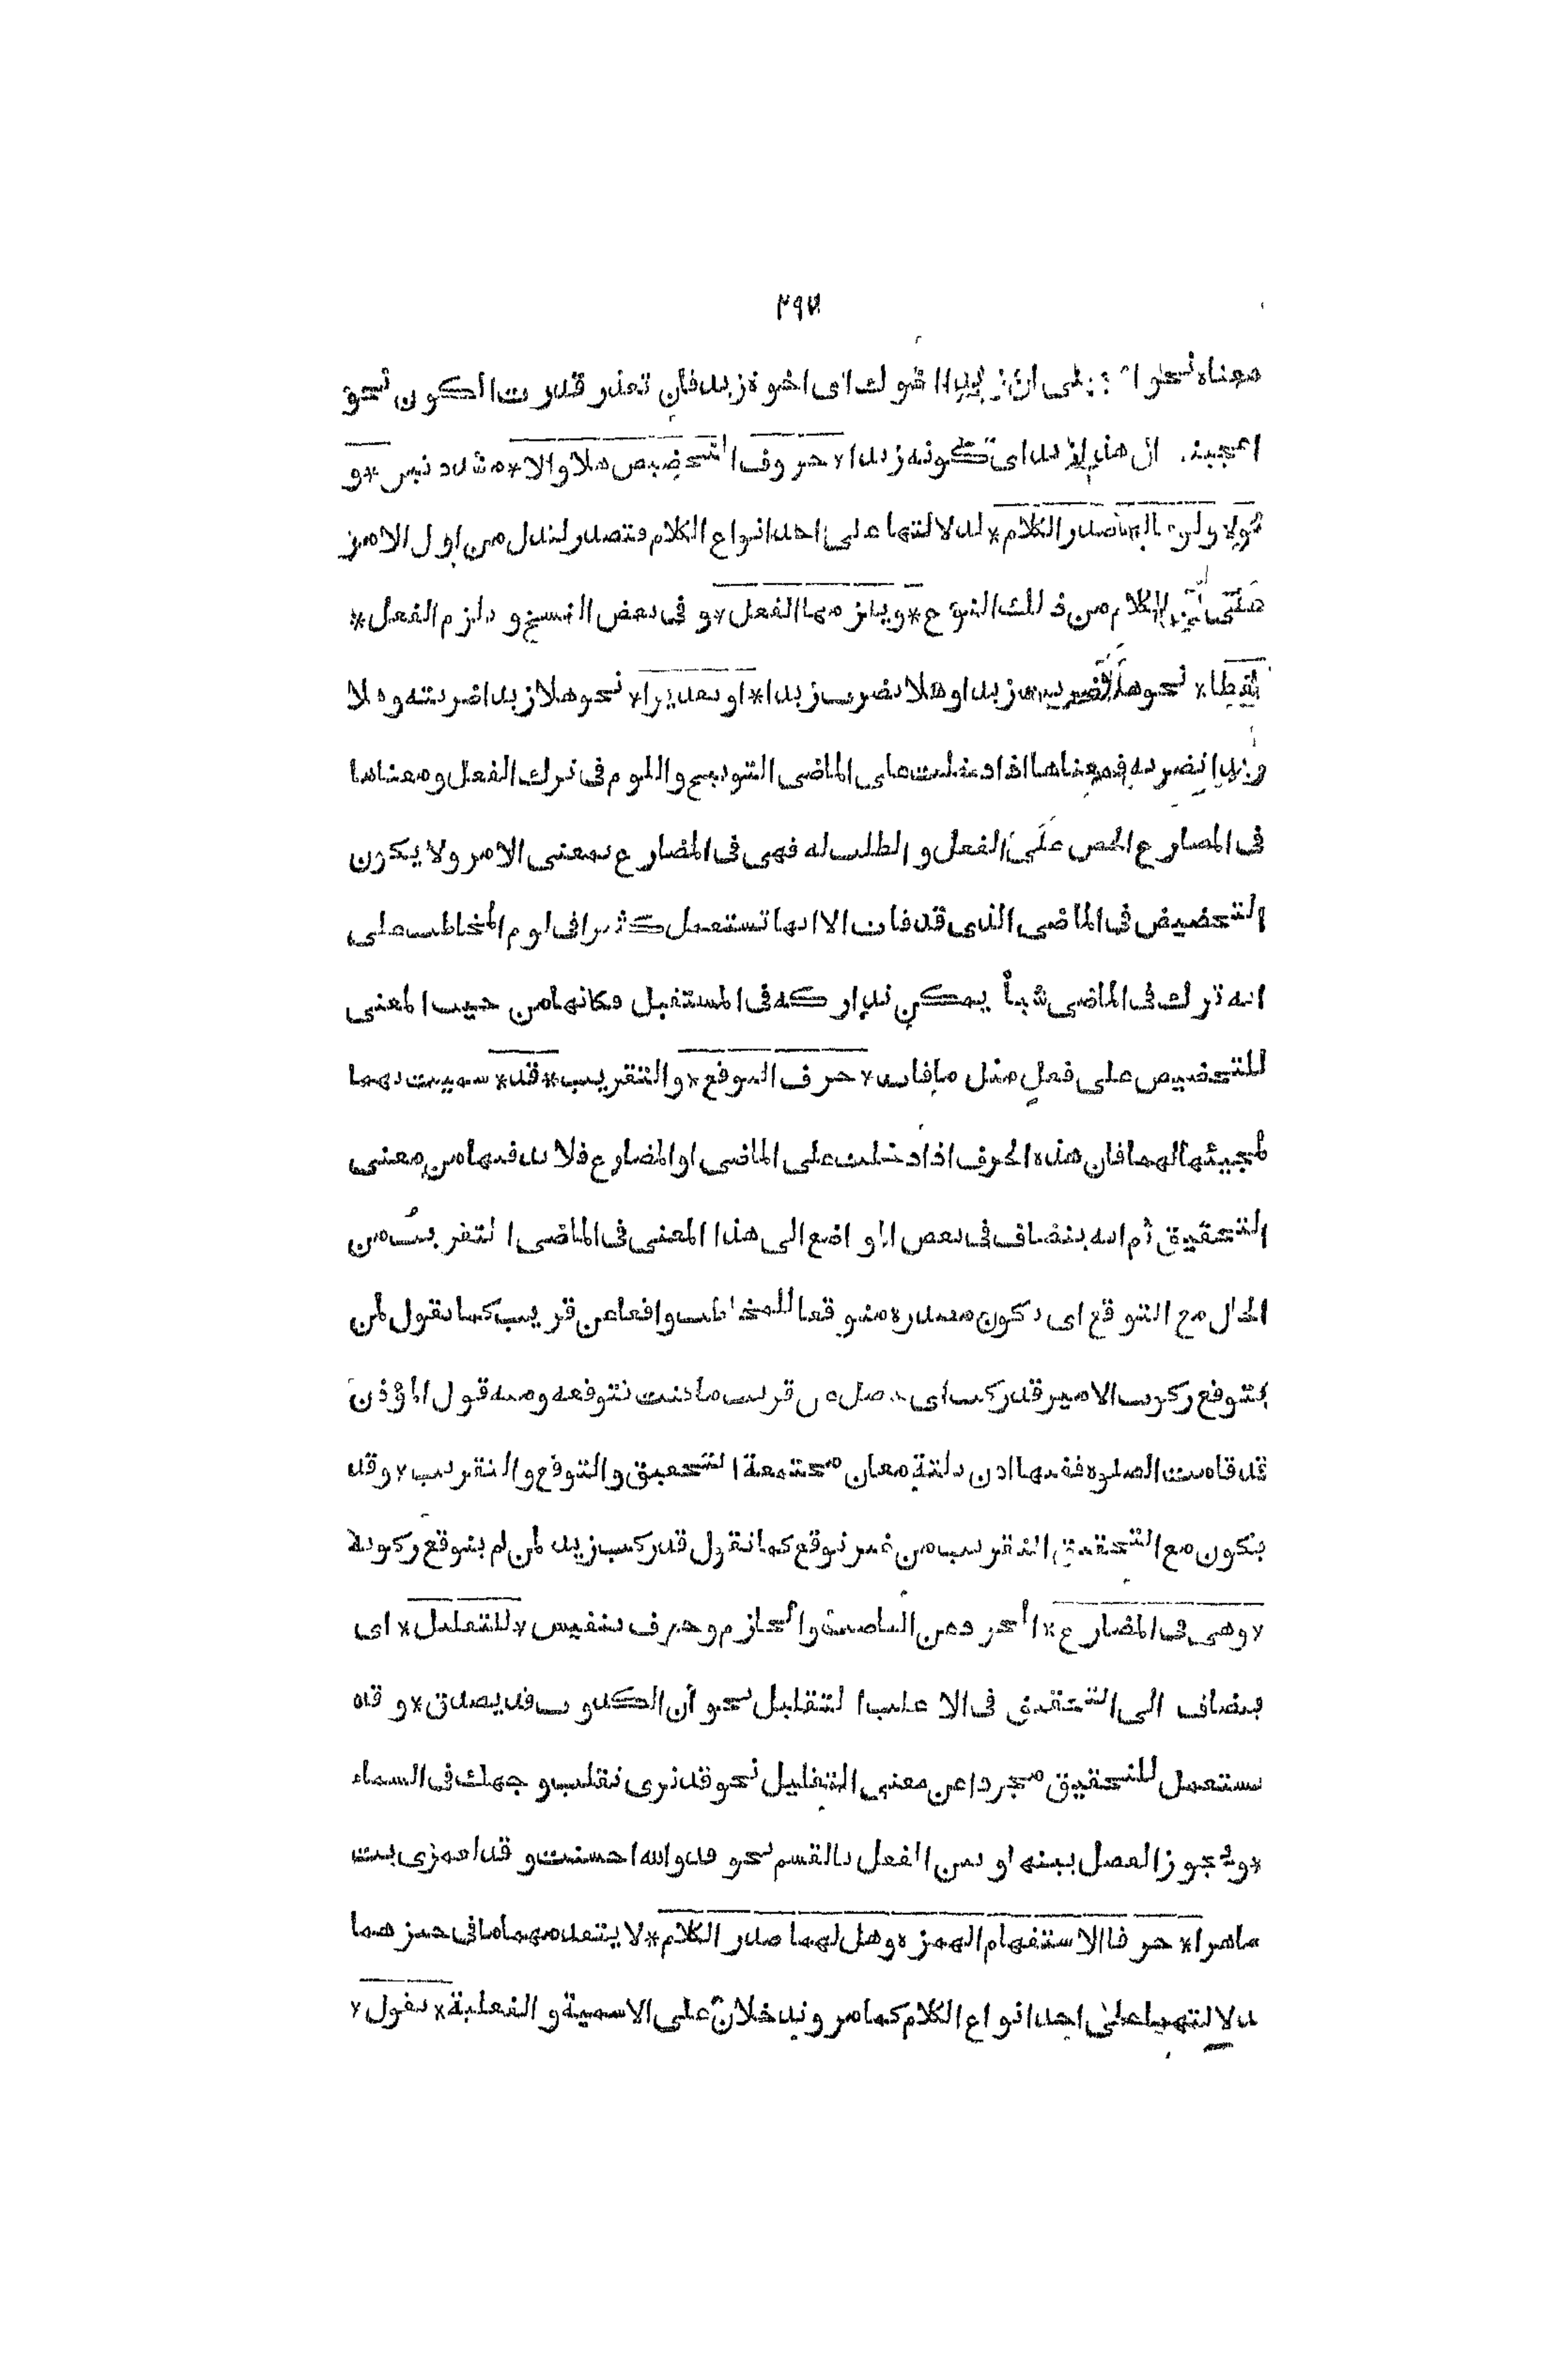 ٢٩٧
معناه نحو بلغنى ان زيدا اخوك اى اخوة زيد فان تعذر قدرت الكون نحو
اعجبنى ان هذا زيد اى كونه زيدا * حروف التحضيض هلا والا * مشددتين * و
لولا ولوما لها صدر الكلام * لدلالتها على احد انواع الكلام فتصدر لتدل من اول الامر
على ان الكلام من ذلك النوع * ويلزمها الفعل * و فى بعض النسخ و يلزم الفعل *
لفظا * نحو هلا ضربت زيدا وهلا تضرب زيدا * او تقديرا * نحو هلا زيدا ضربته وهلا
زيدا تضربه فمعناها اذا دخلت على الماضى التوبيخ واللوم فى ترك الفعل ومعناها
فى المضارع الحض على الفعل و الطلب له فهى فى المضارع بمعنى الامر ولا يكون
التحضيض فى الماضى الذى قد فات الا انها تستعمل كثيرا فى لوم المخاطب على
انه ترك فى الماضى شيأ يمكن تداركه فى المستقبل فكانها من حيث المعنى
للتحضيض على فعل مثل ما فات * حرف التوقع * والتقريب * قد * سميت بهما
لمجيئها لهما فان هذه الحرف اذا دخلت على الماضى او المضارع فلا بد فيها من معنى
التحقيق ثم انه يضاف فى بعض المواضع الى هذا المعنى فى الماضى التقريب من
الحال مع التوقع اى يكون مصدره متوقعا للمخاطب واقعا عن قريب كما تقول لمن
يتوقع ركوب الامير قد ركب اى حصل عن قريب ما كنت تتوقعه ومنه قول المؤذن
قد قامت الصلوة ففيها اذن ثلثة معان مجتمعة التحقيق والتوقع والتقريب * وقد
يكون مع التحقيق التقريب من غير توقع كما تقول قد ركب زيد لمن لم يتوقع ركوبه
* وهى فى المضارع * المجرد عن الناصب والجازم وحرف تنفيس * للتقليل * اى
يضاف الى التحقيق فى الاغلب التقليل نحو ان الكذوب قد يصدق * و قد
تستعمل للتحقيق مجردا عن معنى التقليل نحو قد نرى تقلب وجهك فى السماء
* ويجوز الفصل بينها و بين الفعل بالقسم نحو قد والله احسنت و قد لعمرى بت
ساهرا * حرفا الاستفهام الهمزه وهل لهما صدر الكلام * لا يتقدمهما ما فى حيزهما
لدلالتهما على احد انواع الكلام كما مر و تدخلان على الاسمية و الفعلية * تقول *